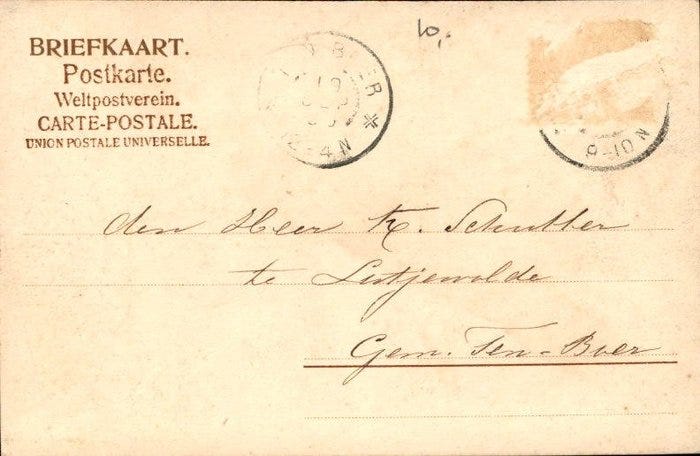 BRIEFKAART.
Postkarte.
Weltpostverein.
CARTE-POSTALE.
UNION POSTALE UNIVERSELLE.
10,-
BOER
12-4N
9-10N
den Heer K. Schutter
te Lutjewolde
Gem. Ten-Boer